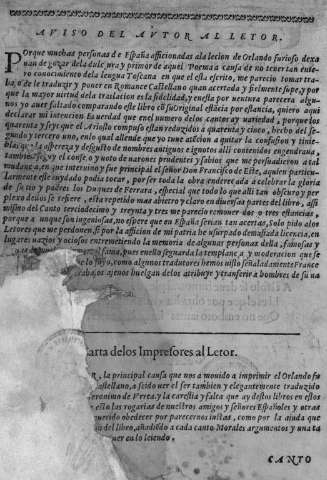 AVISO DEL AVTOR AL LETOR,
Porque muchas personas de España afficionadas ala lecion de Orlando furioso dexa
uan de gozar dela dulçura y primor de aquel Poema a causa de no tener tan ente
ro conocimiento dela lengua Toscana en que el esta escrito, me parecio tomar tra
que la mayor uirtud dela traslacion es la fidelidad, y enesta por uentura parecera algu
nos yo auer faltado comparando este libro cõ su Original
declarar mi intencion. Es uerdad que enel numero delos cantos ay variedad, porque los
quarenta y seys que el Ariosto compuso estan reduzidos a quarenta y cinco, hecho del se
gundo y tercero uno, enlo qual allende que yo tuue aficion a quitar la confusion y tinie
aspereza y desgusto de nombres antiguos e ignotos alli contenidos en
y el consejo y uoto de uarones prudentes y sabios que me persuadieron a tal
mudança, en que interuino y fue principal el señor Don Francisco de Este, aquien particu
larmente el podia tocar, por ser toda la obra endereçada a celebrar la gloria
de su tio y padre los Duques de Ferrara, especial que todo lo que alli tan obscuro y per
plexo delos se refiere, esta repetido mas abierto y claro en diuersas partes del libro, assi
mismo del Canto terciodecimo y treynta y tres me parecio remouer dos o tres estancias,
por que aunque son ingeniosas, no espere que en España serian tan acertas, Solo pido alos
Letores que me perdonen, si por la afficion de mi patria he usurpado demasiada licencia, en
lugares uazios y ociosos entremetiendo la memoria de algunas personas della, famosas y
pues enello seguarda la templança y moderacion que se
lo suyo, como algunos tradutores hemos uisto señaladamente France
agenos huelgan delos atribuyr y transferir a hombres de su na
Carta delos Impresores al Letor.
la principal causa que nos a mouido a imprimir el Orlando fu
Castellano, a seido uer el ser tambien y elegantemente traduzido
Geronimo de Vrrea, y la carestia y falta que ay destos libros en estos
ello las rogarias de nuestros amigos y señores Españoles y otras
querido obedecer por parecernos justas, como por la ayuda que
del libro, añadiēdo a cada canto Morales argumentos y una ta
uer en lo leiendo,
CANTO